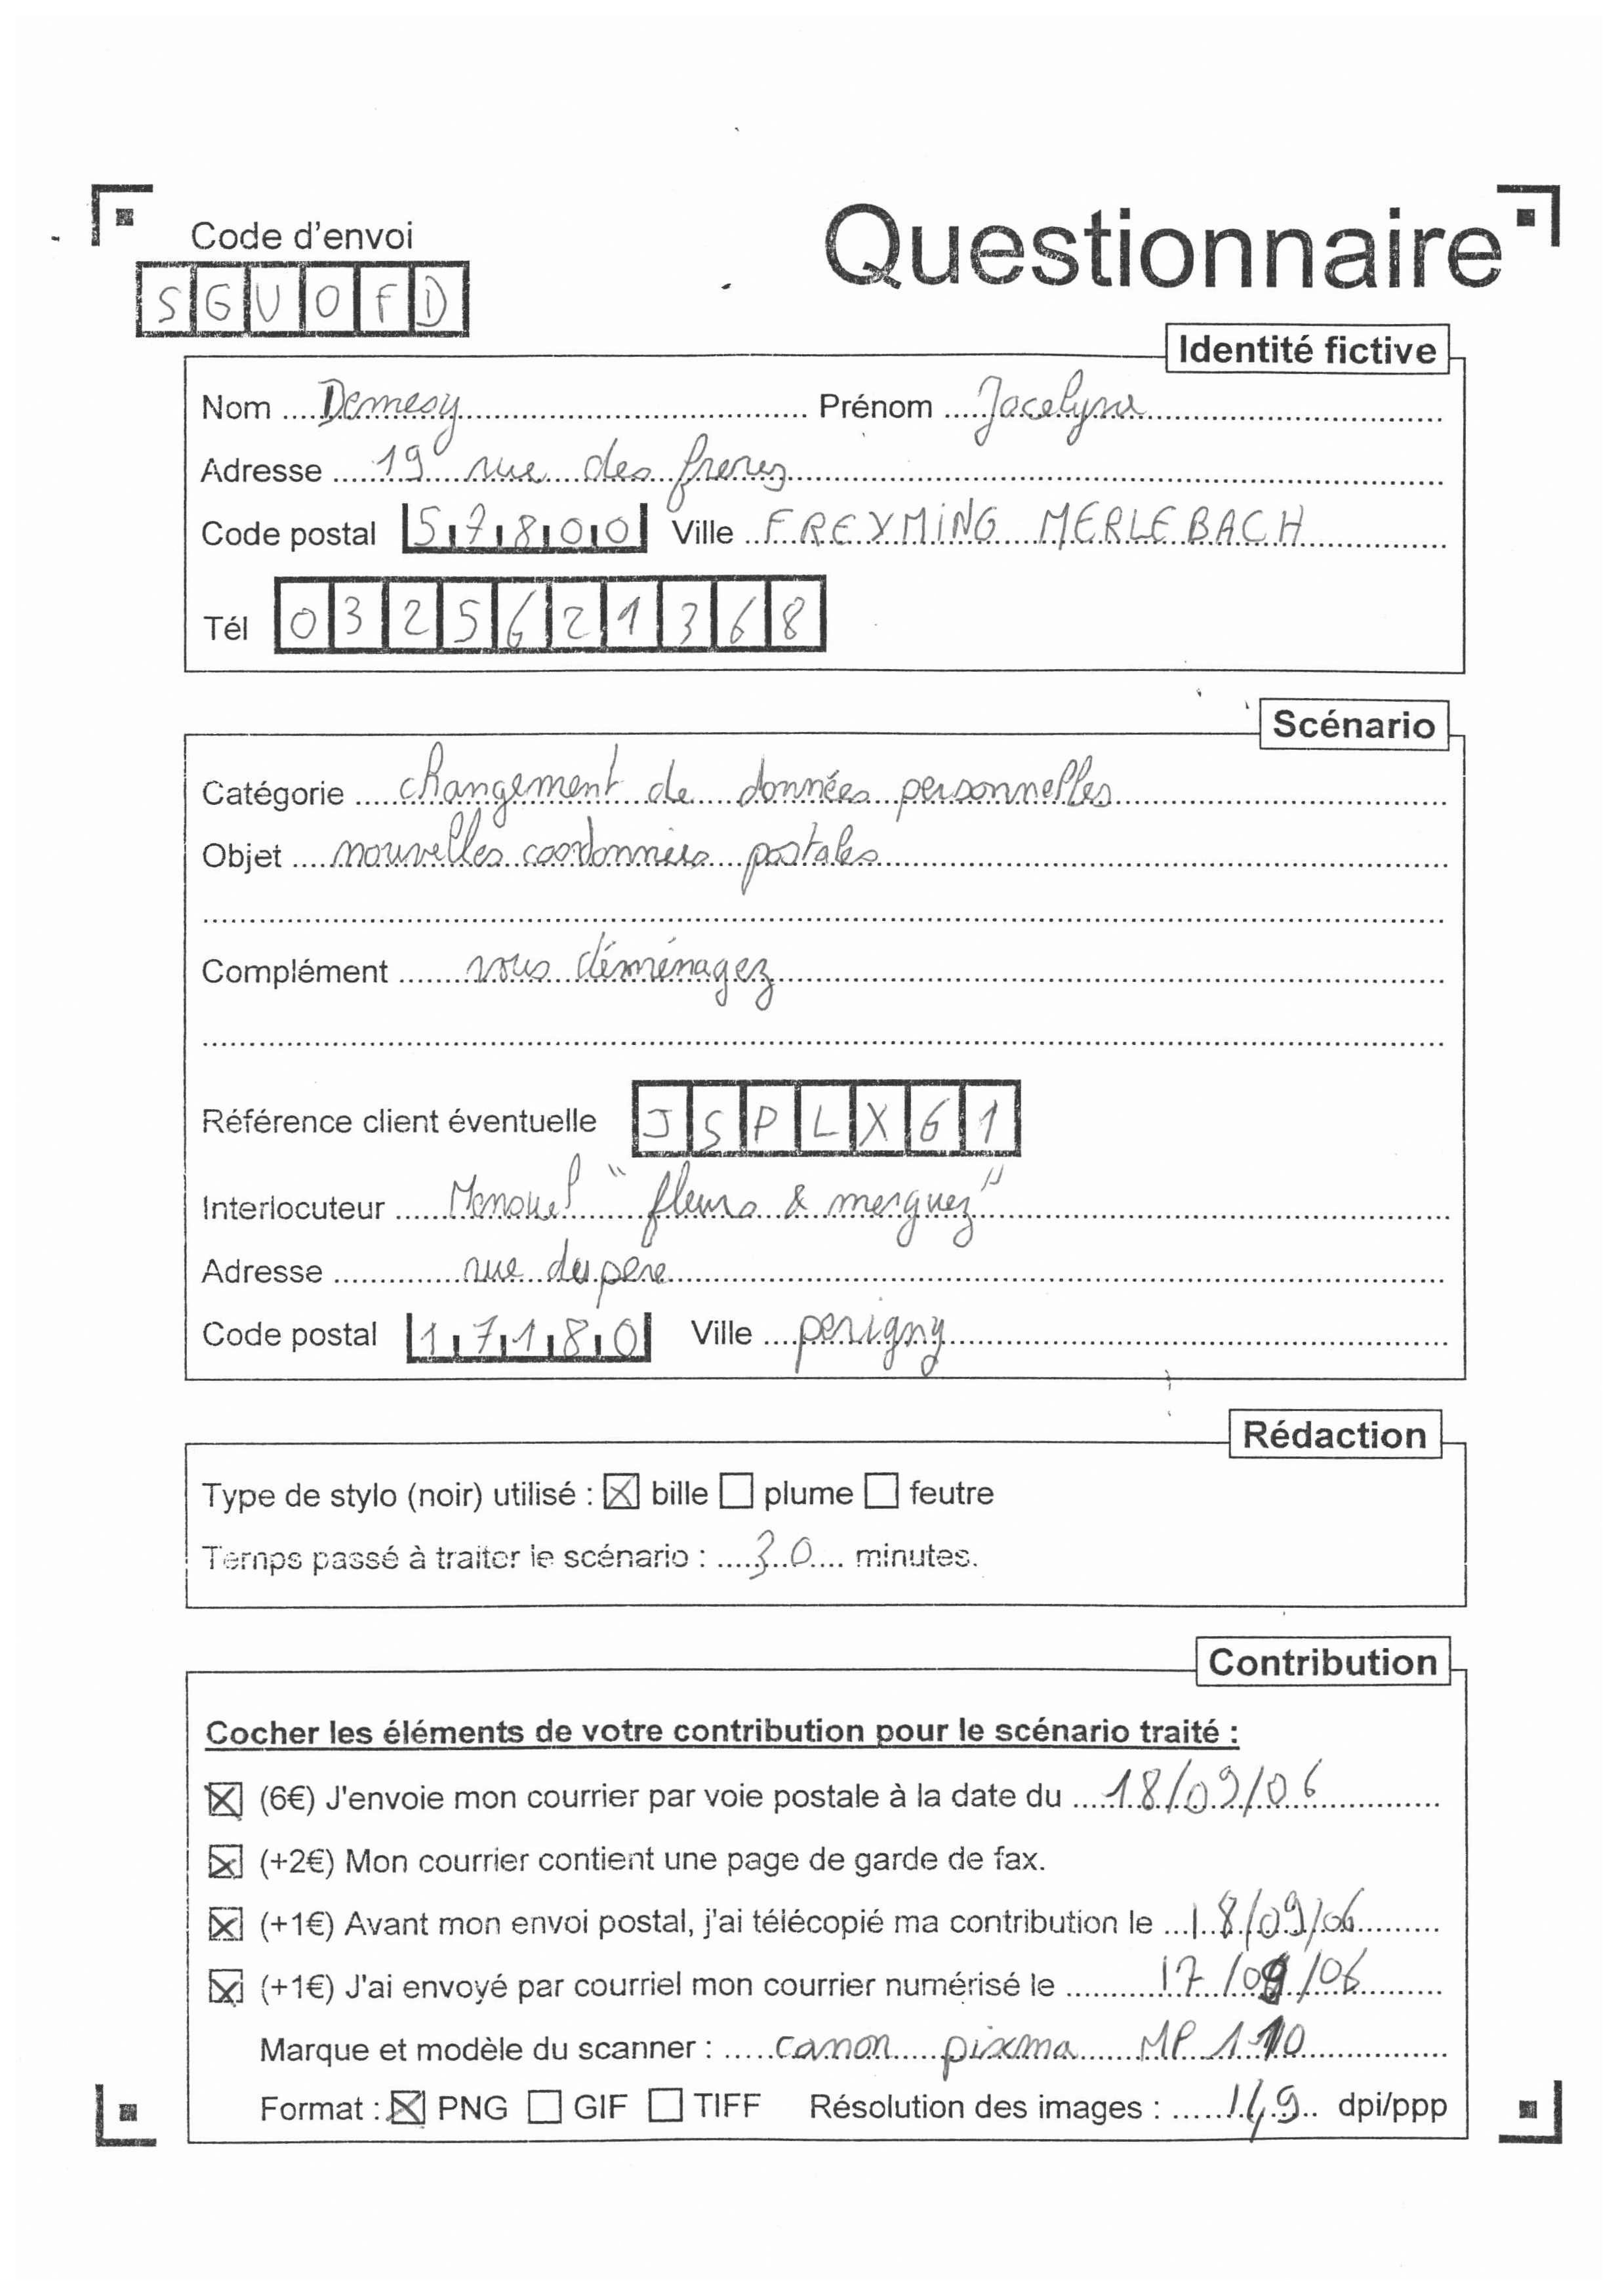 Code d'envoi
Questionnaire
SGUOfD
Identité fictive
Nom Demesy Prénom Jocelyne
Adresse 19 rue des freres
Code postal 57800 Ville FREYMING MERLEBACH
Tél 0325621368
Scénario
Catégorie changement de données personnelles
Objet nouvelles coordonnées postales
Complément vous déménagez
Référence client éventuelle JSPLX61
Interlocuteur "fleurs & merguez"
Adresse rue du pere
Code postal 17180 Ville perigny
Rédaction
Type de stylo (noir) utilisé : bille plume feutre
Temps passé à traiter le scénario : 30 minutes.
Contribution
Cocher les éléments de votre contribution pour le scénario traité :
(6€) J'envoie mon courrier par voie postale à la date du 18/09/06
(+2€) Mon courrier contient une page de garde de fax.
(+1€) Avant mon envoi postal, j'ai télécopié ma contribution le 18/09/06
(+1€) J'ai envoyé par courriel mon courrier numérisé le 17/09/06
Marque et modèle du scanner : canon pixma MP 110
Format : PNG GIF TIFF Résolution des images : 149 dpi/ppp